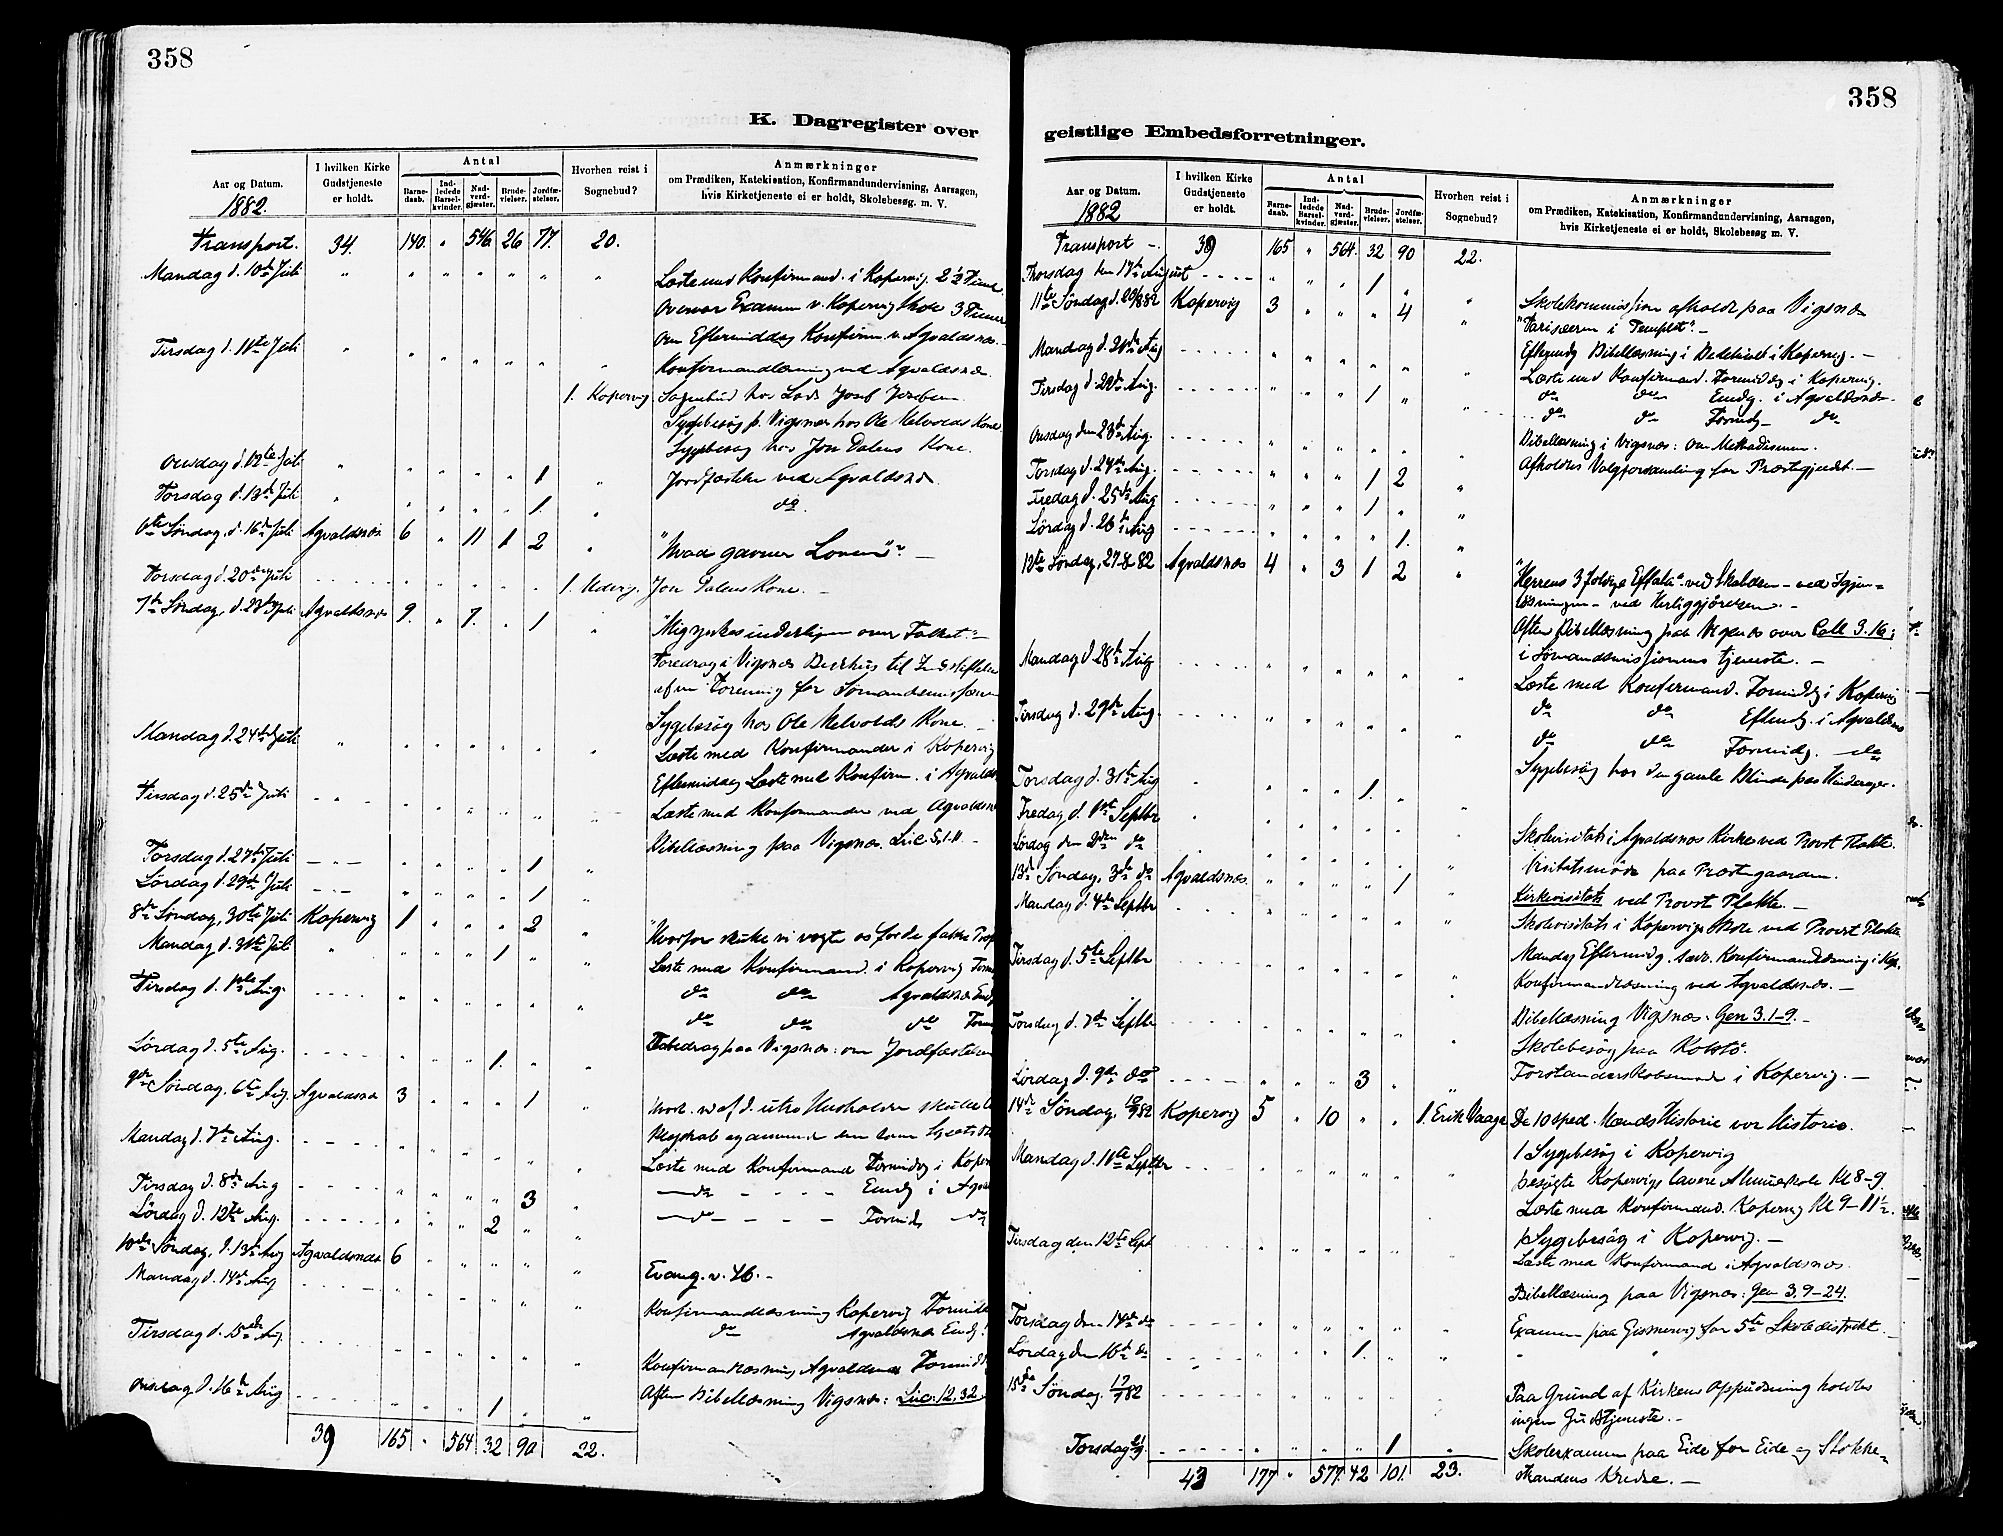 358
K. Dagregister over
Aar og Datum.
1882.
I hvilken Kirke Gudstjeneste er holdt.
Antal
Barne-daab.
Ind-ledede Barsel-kvinder.
Nad-verd-gjæster.
Brude-vielser.
Jordfæ-stelser.
Hvorhen reist i Sognebud?
Anmærkninger
om Prædiken, Katekisation, Konfirmandundervisning, Aarsagen,
hvis Kirketjeneste ei er holdt, Skolebesøg m. V.
Transport. 34. 140. " 546 26 77. 20.
Mandag d. 10de Juli " Læste med Konfirmand. i Kopervig 2 1/2 Time
Overvar Examen v. Kopervig Skole 3 Timer
Om Eftermiddag Konfirm. v. Agvaldsnæs
Tirsdag d. 11te Juli " Konfirmandlæsning ved Agvaldsnæs
1. Kopervig Sognebud hos Lods
Sygebesøg p. Vigsnæs hos Ole Melvolds Kone
Sygebesøg hos Jon Dalens Kone.
Onsdag d. 12te Juli " 1 Jordfæstelse ved Agvaldsnæs
Torsdag d. 13de Juli " 1. do.
6te Søndag, d. 16de Juli Agvaldsnæs 6 " 11 1 2 " "Hvad gavner Loven"? —
Torsdag d. 20de Juli 1. Jon Dalens Kone. —
7de Søndag, d. 23de Juli Agvaldsnæs 9. " 7. " 1 " "Mig ynkes inderligen over Folket." —
Foredrag i Vigsnæs Bedehus til
af en Forening for Sømandsmissionen
Sygebesøg hos Ole Melvolds Kone —
Mandag d. 24de Juli " Læste med Konfirmander i Kopervig
Eftermiddag Læste med Konfirm. i Agvalds
Tirsdag d. 25de Juli Læste med Konfirmander ved Agvaldsnæs
Bibellæsning paa Vigsnæs. Luc. 5, 1-11 —
Torsdag d. 27de Juli 1
Lørdag d. 29de Juli 1
8de Søndag, 30te Juli Kopervig 1 2 "Hvorfor skulle vi vogte os for de falske
Mandag d. 31te Juli " 1 Læste med Konfirmand. i Kopervig
Tirsdag d. 1ste Aug. do do Agvaldsnæs
do do do
Foredrag paa Vigsnæs: om Jordfæstelsen
Lørdag d. 5te Aug. 1.
9de Søndag, 6te Aug. Agvaldsnæs 3 1
Mandag d. 7de Aug. Læste med Konfirmand Formidg i
Tirsdag d. 8de Aug 3 do Emdg i
Lørdag d. 12te Aug. 2 do Formidg do
10de Søndag, d. 13de Aug Agvaldsnæs 6 Evang. v. 46. —
Mandag d. 14de Aug Konfirmandlæsning Kopervig
do Agvaldsnæs Emdg.
Tirsdag d. 15de Aug. Konfirmandlæsning Agvaldsnæs
Onsdag d. 16de Aug 1 Aften Bibellæsning Vigsnæs: Luc: 12, 32
39 165 " 564 32 90 22.
358
geistlige Embedsforretninger.
Aar og Datum.
1882
I hvilken Kirke Gudstjeneste er holdt.
Antal
Barne-daab.
Ind-ledede Barsel-kvinder.
Nad-verd-gjæster.
Brude-vielser.
Jordfæ-stelser.
Hvorhen reist i Sognebud?
Anmærkninger
om Prædiken, Katekisation, Konfirmandundervisning, Aarsagen,
hvis Kirketjeneste ei er holdt, Skolebesøg m. V.
Transport — 39 165 " 564. 32 90 22.
Thorsdag den 17de August 1 Skolekommission afholdt paa Vigsnæs
11te Søndag d. 20/8 82 Kopervig 3 4 "Farisæeren i Templet". —
Eftmdg Bibellæsning i Bedehuset i Kopervig. —
Mandag d. 21de Aug Læste med Konfirmand. Formidg i Kopervig.
Tirsdag d. 22de Aug. 1 do do Emdg. i Agvaldsnæs
do do Formdg do
Onsdag den 23de Aug. Bibellæsning i Vigsnæs: om Methodismen.
Torsdag d. 24de Aug. 1 2 Afholdtes Valgforsamling for Præstegjeldet. —
Fredag d. 25de Aug 1
Lørdag d. 26de Aug 1.
12te Søndag, 27-8 82 Agvaldsnæs 4 " 3 1 2 "Herrens 3 foldige Effata" ved Skabelsen — ved Igjen-
løsningen — ved Herliggjørelsen. —
Aften Bibellæsning paa Vigsnæs over Coll 3.16:
i Sømandsmissionens tjeneste. —
Mandag d. 28de Aug Læste med Konfirmand. Formidg i Kopervig
do do Eftmdg. i Agvaldsnæs
Tirsdag d. 29de Aug. do do Formidg. do
Sygebesøg hos den gamle Blinde paa Hinderager.
Torsdag d. 31te Aug 1.
Fredag d. 1ste Septbr
Lørdag den 2den do Skolevisitats i Agvaldsnæs Kirke ved Provst
13de Søndag, 3de do Agvaldsnæs. 1 Visitatsmøde paa Præstegaarden.
Mandag d. 4de Septbr Kirkevisitats ved Provst
Skolevisitats i Kopervigs Skole ved Provst
Tirsdag d. 5te Septbr Mandag Eftermidg. Konfirmandlæsning i Kop.
Konfirmandlæsning ved Agvaldsnæs. —
Torsdag d. 7de Septbr Bibellæsning Vigsnæs. Gen 3.1-9. —
Skolebesøg paa Kolstø.
Lørdag d. 9de do 3 Forstanderskabsmøde i Kopervig. —
14de Søndag, 10/9 82 Kopervig 5 " 10 " " 1. Erik Vaage De 10 sped. Mænds Historie vor Historie.
1 Sygebesøg i Kopervig
Mandag d. 11te Septbr besøgte Kopervigs lavere Almueskole Kl 8-9.
Læste med Konfirmand. Kopervig Kl 9-11 1/2.
Tirsdag den 12te Sept 1 Sygebesøg i Kopervig. —
Læste med Konfirmand i Agvaldsnæs.
Bibellæsning paa Vigsnæs: Gen 3, 9-24.
Torsdag den 14de do Examen paa for 5te Skoledistrikt
Lørdag den 16de do 1.
15de Søndag. 17/9 82 Paa Grund af Kirkens Oppudsning holdtes
ingen Gudstjeneste. —
Torsdag 21/9 1 Skolexamen paa Eide for Eide og Stokke-
strandens Kredse. —
43 177 " 577. 42 101. 23.